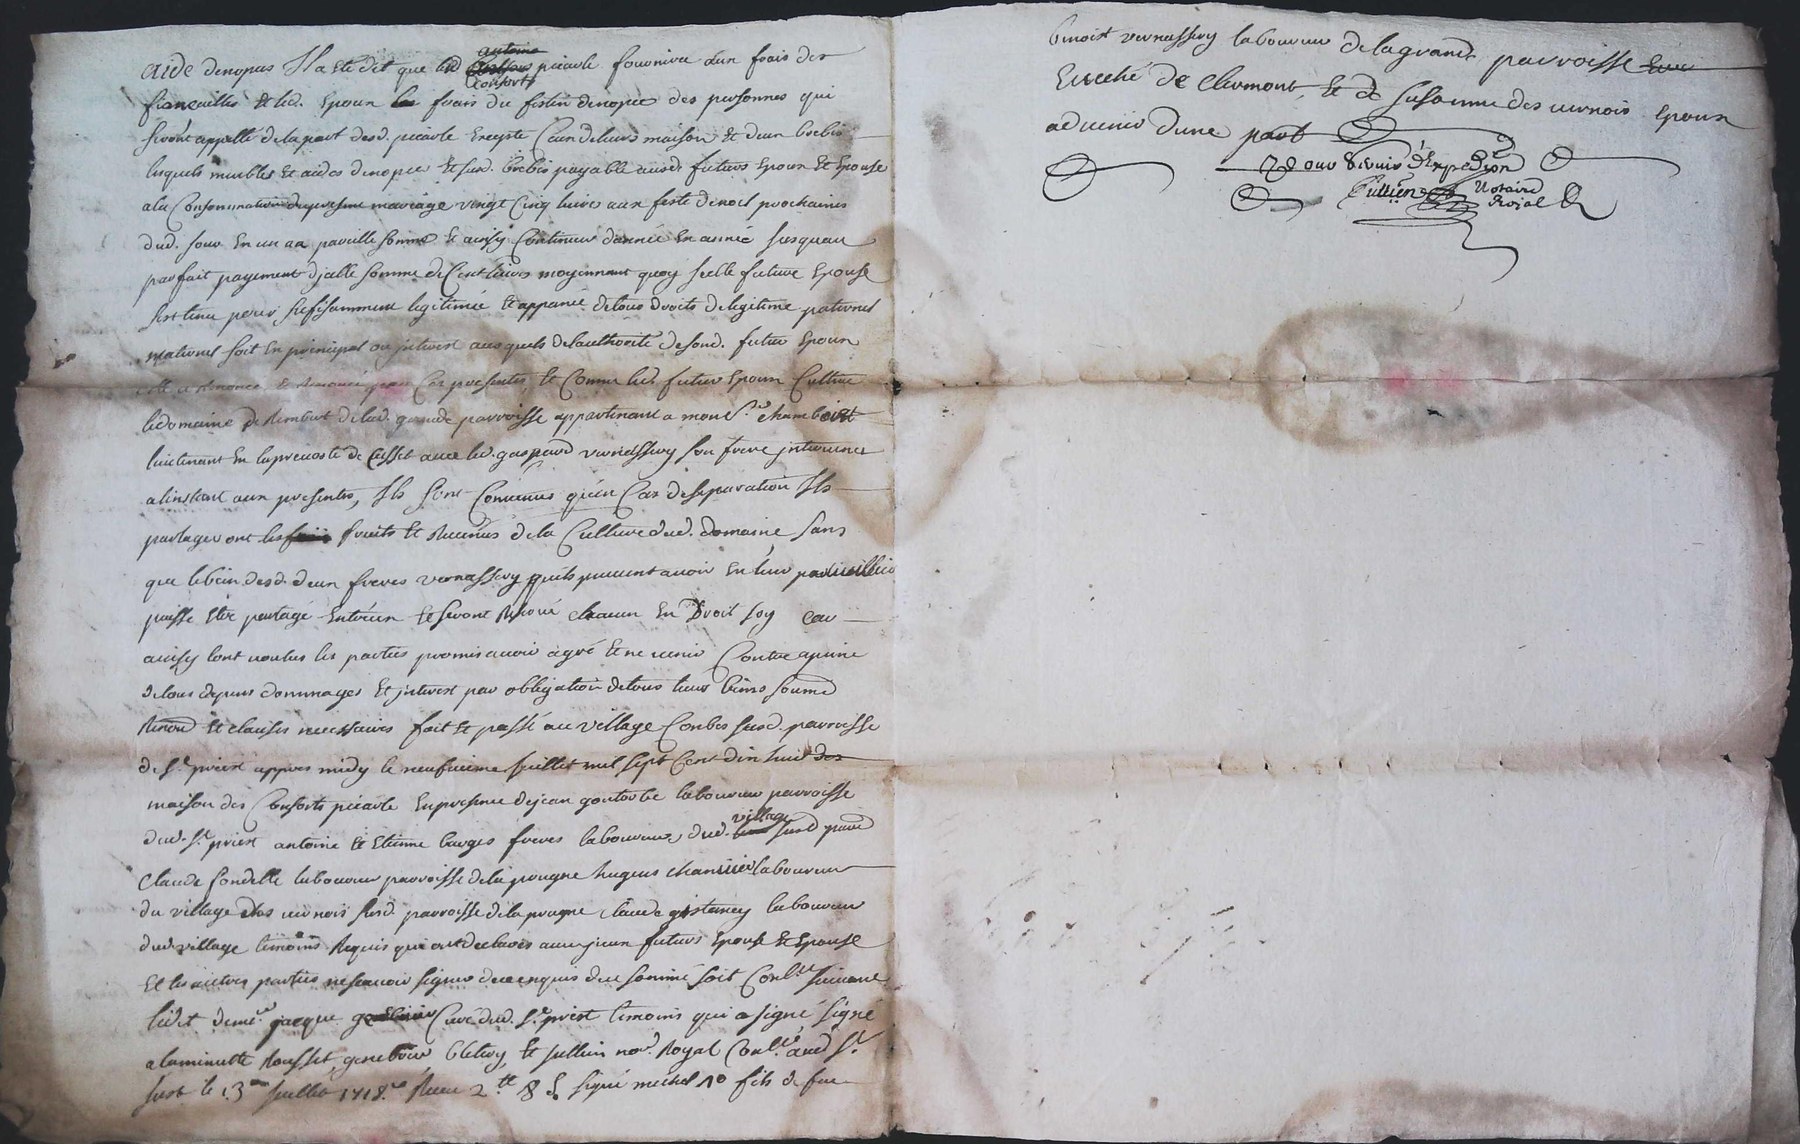 aide denopces Il a ete dit que led antoine consorts picarle fournira aux frais des
fiancailles Et led. Epoux les frais du festin denopce des personnes qui
seront appellé delapart desd. picarle Excepte Ceux deleurs maison Et deux brebis
lesquels meubles Et aides denopce Et susd. brebis payable ausd. futurs Epoux Et Epouse
a la Consommation dupresent mariage vingt Cinq livres aux feste denoel prochaines
dud. jour En un an pareille somme Et ainsy Continuer d'année En année jusquau
parfait payement d'jcelle somme de Cent livres moyennant quoy jcelle future Epouse
sest tenu pour suffisamment legitimée Et appanée detous droits de legitime paternel
maternel soit En principal ou jnterest ausquels delauthorité desond. futur Epoux
elle a renoncé Et renonce par Ces presentes, Et Comme led. futur Epoux Cultive
ledomaine de Rimbert delad. grande parroisse appartenant a mons.r chambon
lieutenant En la prevosté de Cusset avec led. gaspard vernassery son frere jntervenu
alinstant aux presentes, Ils sont Convenus qu'en Cas deseparation Ils
partageront les fruits Et Revenus de la Culture dud. domaine sans
que lebien desd. deux freres vernassery quils peuvent avoir En leur particullier
puisse Etre partagé Entreux Et seront chacun En Droit soy Car
ainsy lont voulus les parties promis avoir agré Et ne venir Contre apeine
detous depens dommages Et jnterest par obligation detous leurs biens soumis
Renon Et clauses necessaires fait Et passé au village Corbes susd. parroisse
de S.t priest appres midy le neufvieme juillet mil sept Cent dix huit
maison des Consorts picarle Enpresence de jean goutorbe laboureur parroisse
dud. S.t priest antoine Et Etienne burges freres laboureurs dud. village susd. parr
Claude fondelle laboureur parroisse dela prugne hugues laboureur
du village des vernois susd. parroisse dela prugne Claude laboureur
dud. village temoins Requis qui ont declarés aveq jceux futurs Epoux Et Epouse
Et les autres parties nescavoir signer dece enquis deue sommé soit Conl.lé suivant
ledit deme.e jacque Curé dud. S.t priest temoins qui a signé signé
alaminutte Rousset, genebrier bletery Et jullien no.re Royal Conl.lé aud S.t
just le 13.me juillet 1718. Receu 2.tt 8 s. signé michel 10 fils de feu
benoist vernassery laboureur delagrande parroisse
Eveché de Clermont, Et de Susanne des vernois Epoux
advenir dune part
pour servir d'Expedition
Jullien Notaire
Royal